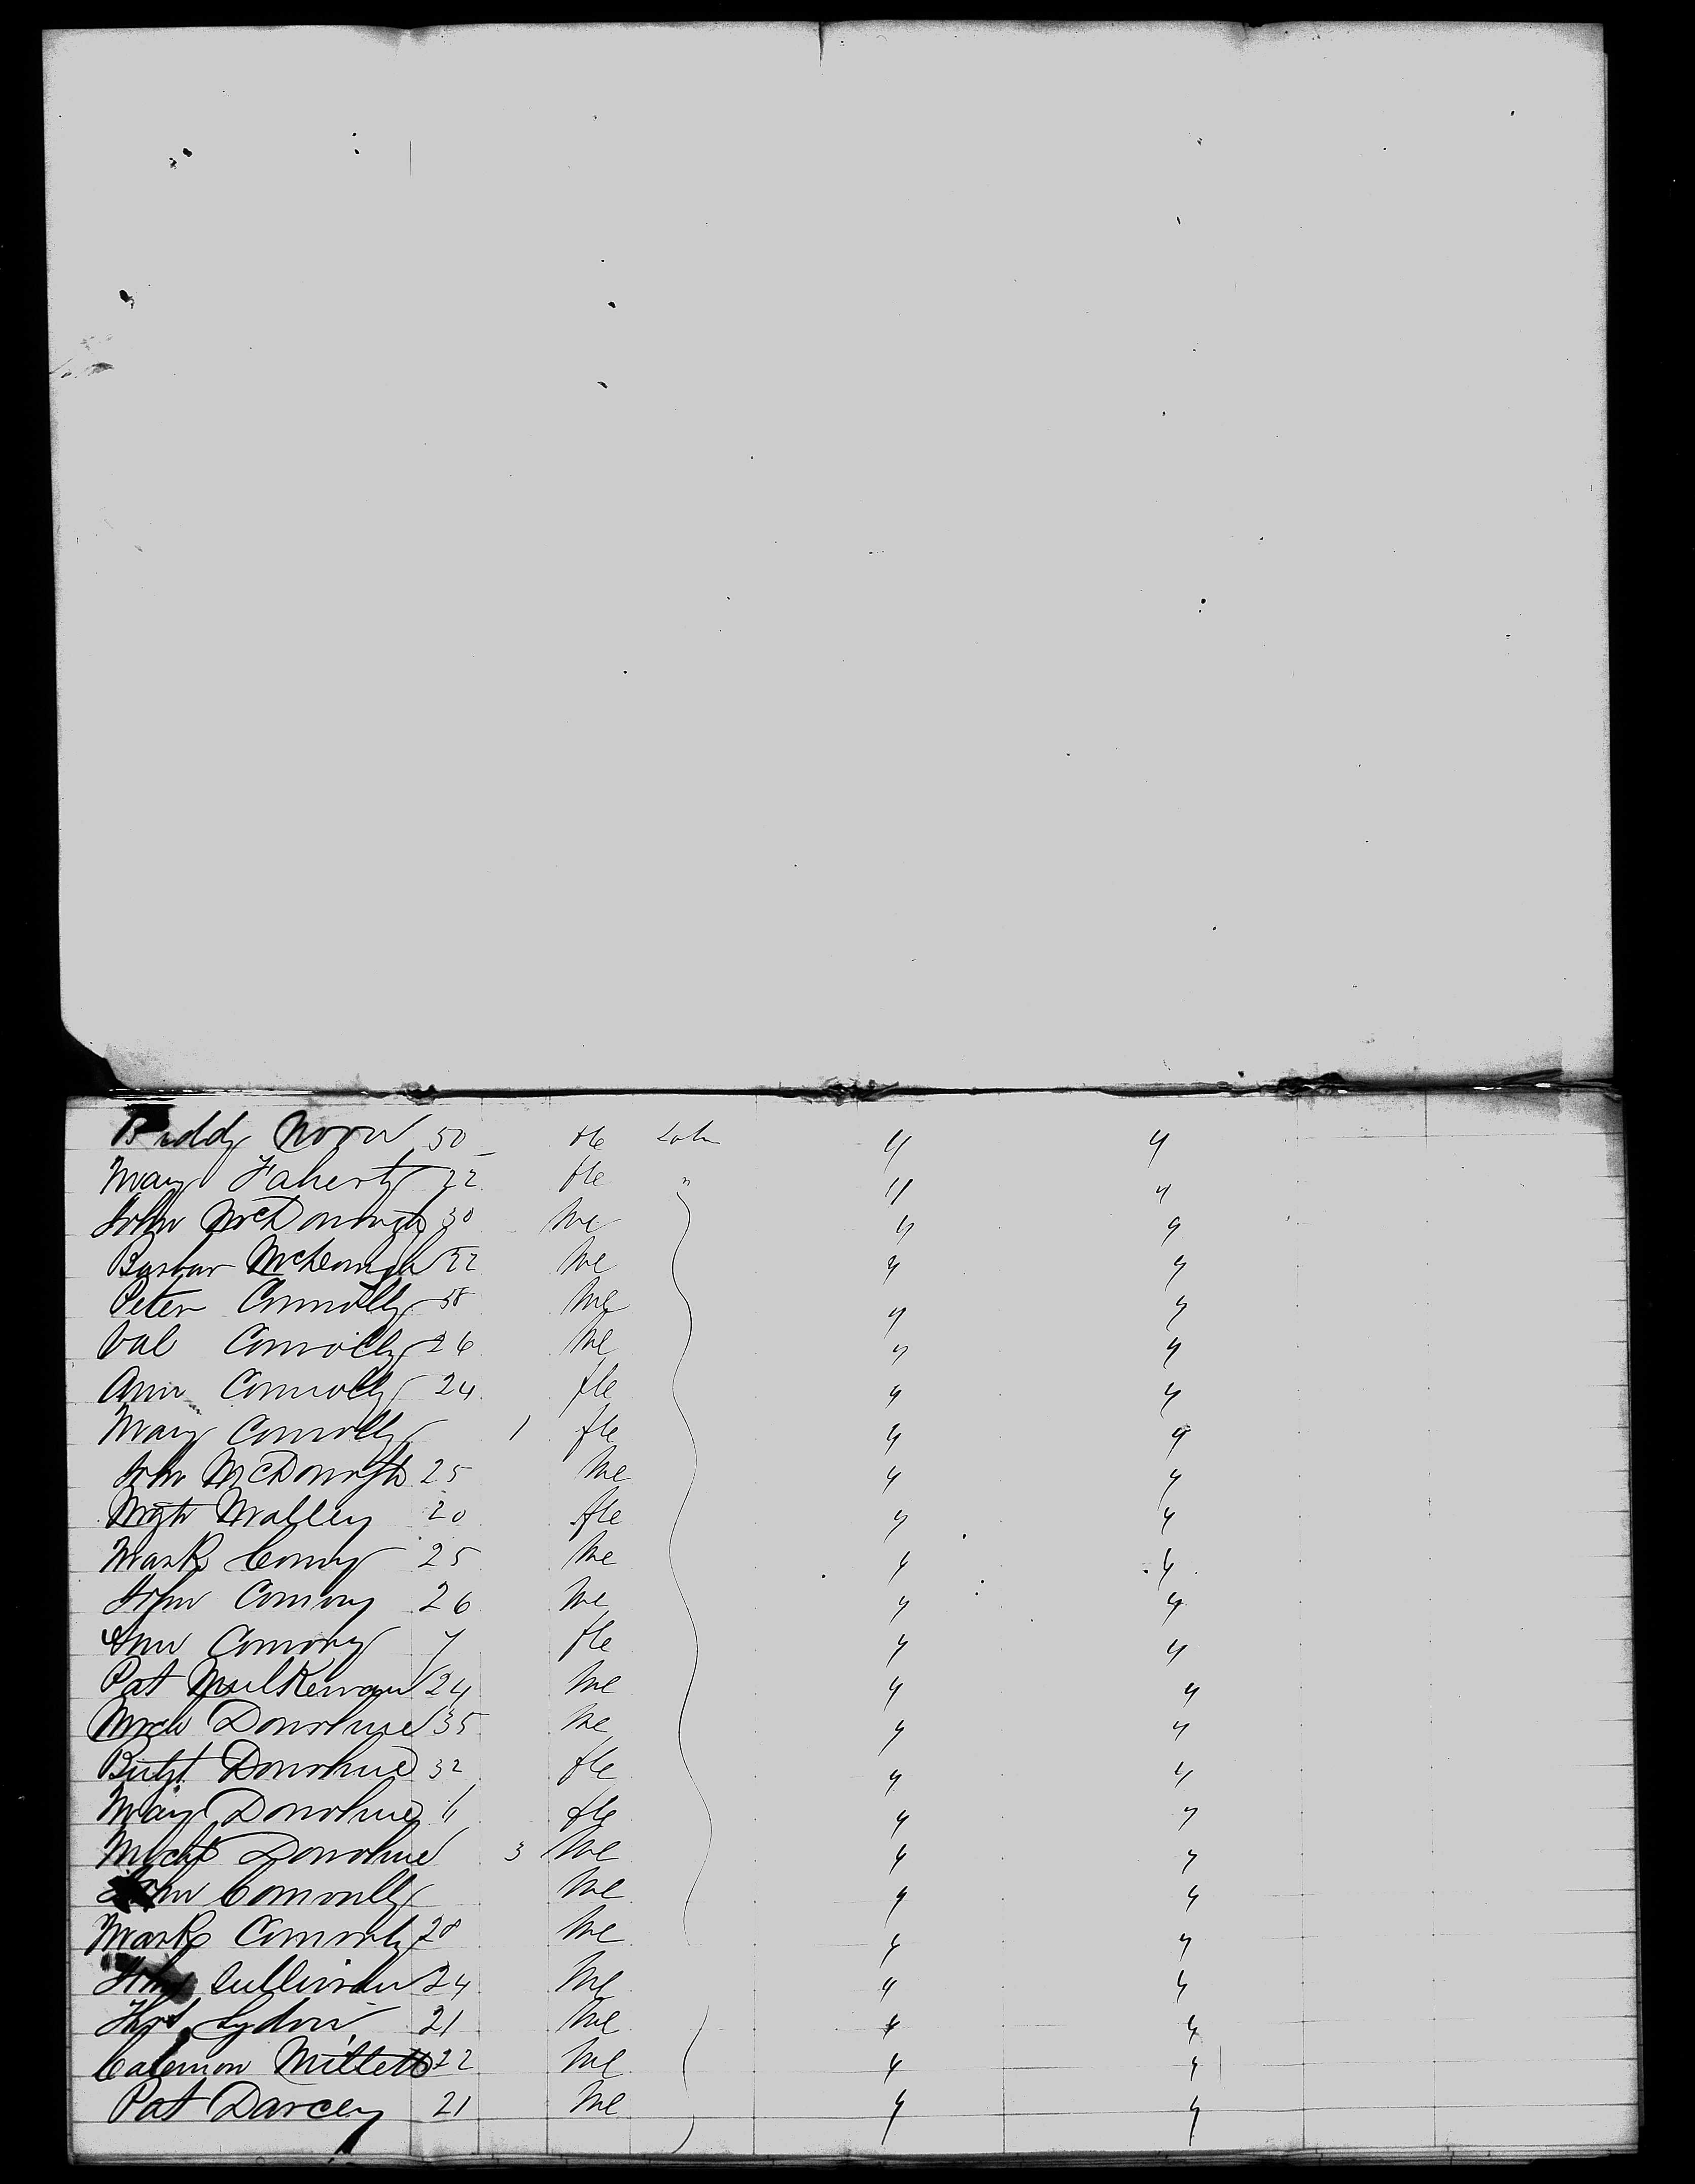 Biddy Noon 50 fle Labr " "
Mary Faherty 22 fle " " "
John McDonough 30 Me " "
Barbar 22 Me " "
Peter Connolly 58 Me " "
Val Connolly 26 Me " "
Ann Connolly 24 fle " "
Mary Connolly 1 fle " "
John McDonogh 25 Me " "
Mgt Malley 20 fle " "
Mark Conroy 25 Me " "
John Conroy 26 Me " "
Ann Conroy 7 fle " "
Pat Mulkerran 24 Me " "
Donohue 35 Me " "
Bridgt Donohue 32 fle " "
Mary Donohue 6 fle " "
Michl Donohue 3 Me " "
Connolly Me " "
Mark Connolly 28 Me " "
John Sullivan 24 Me " "
Lydon 21 Me " "
Coleman Millett 22 Me " "
Pat Darcey 21 Me " "